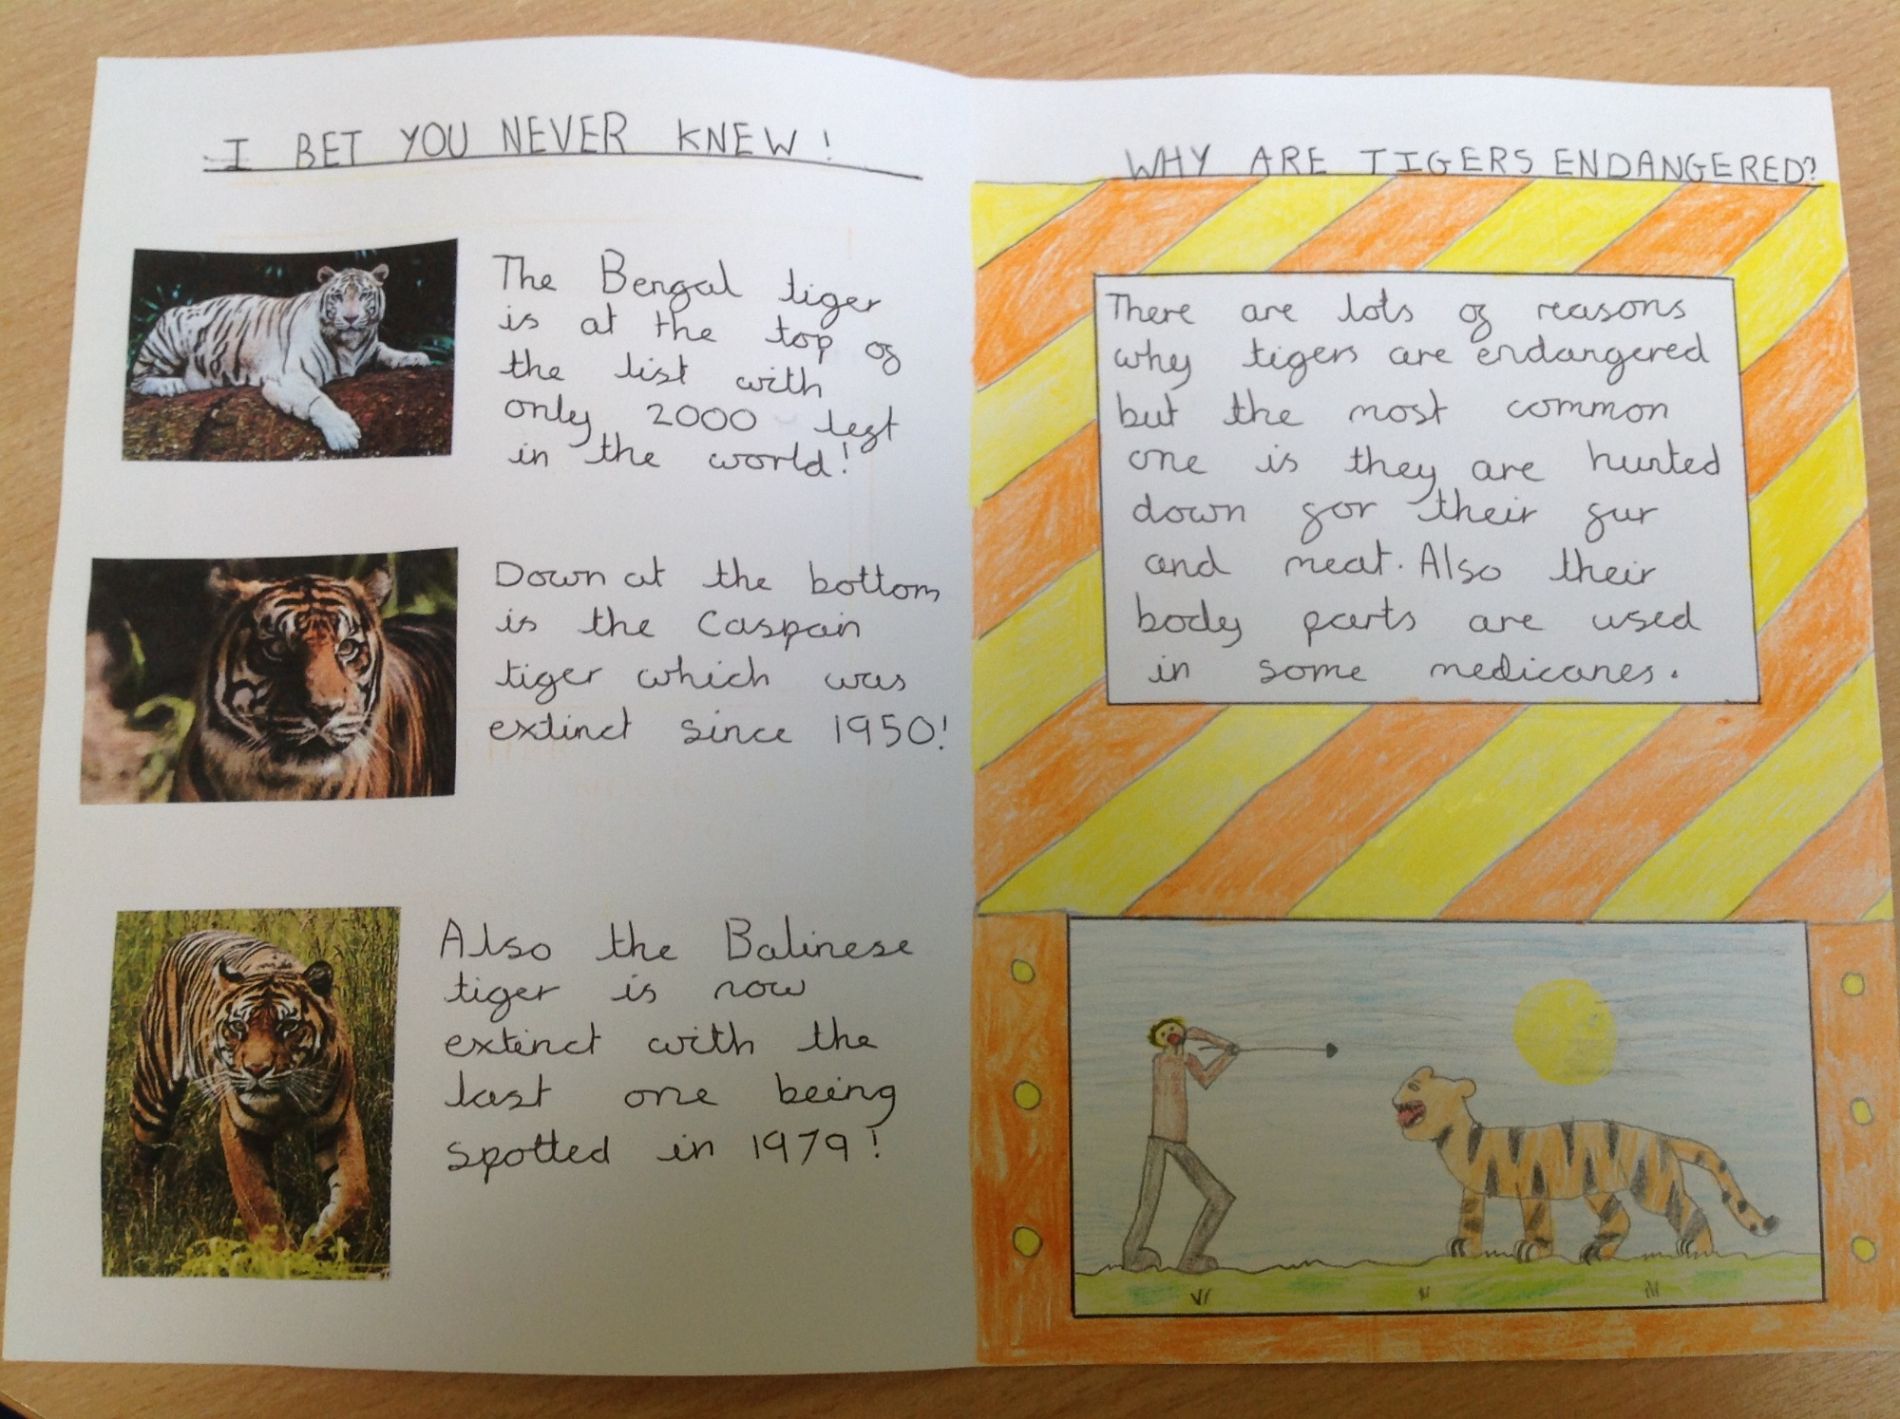 I BET YOU NEVER KNEW!
The Bengal tiger
is at the top of
the list with
only 2000 left
in the world!
Down at the bottom
is the Caspain
tiger which was
extinct since 1950!
Also the Balinese
tiger is now
extinct with the
last one being
spotted in 1979!
WHY ARE TIGERS ENDANGERED?
There are lots of reasons
why tigers are endangered
but the most common
one is they are hunted
down for their fur
and meat. Also their
body parts are used
in some medicanes.